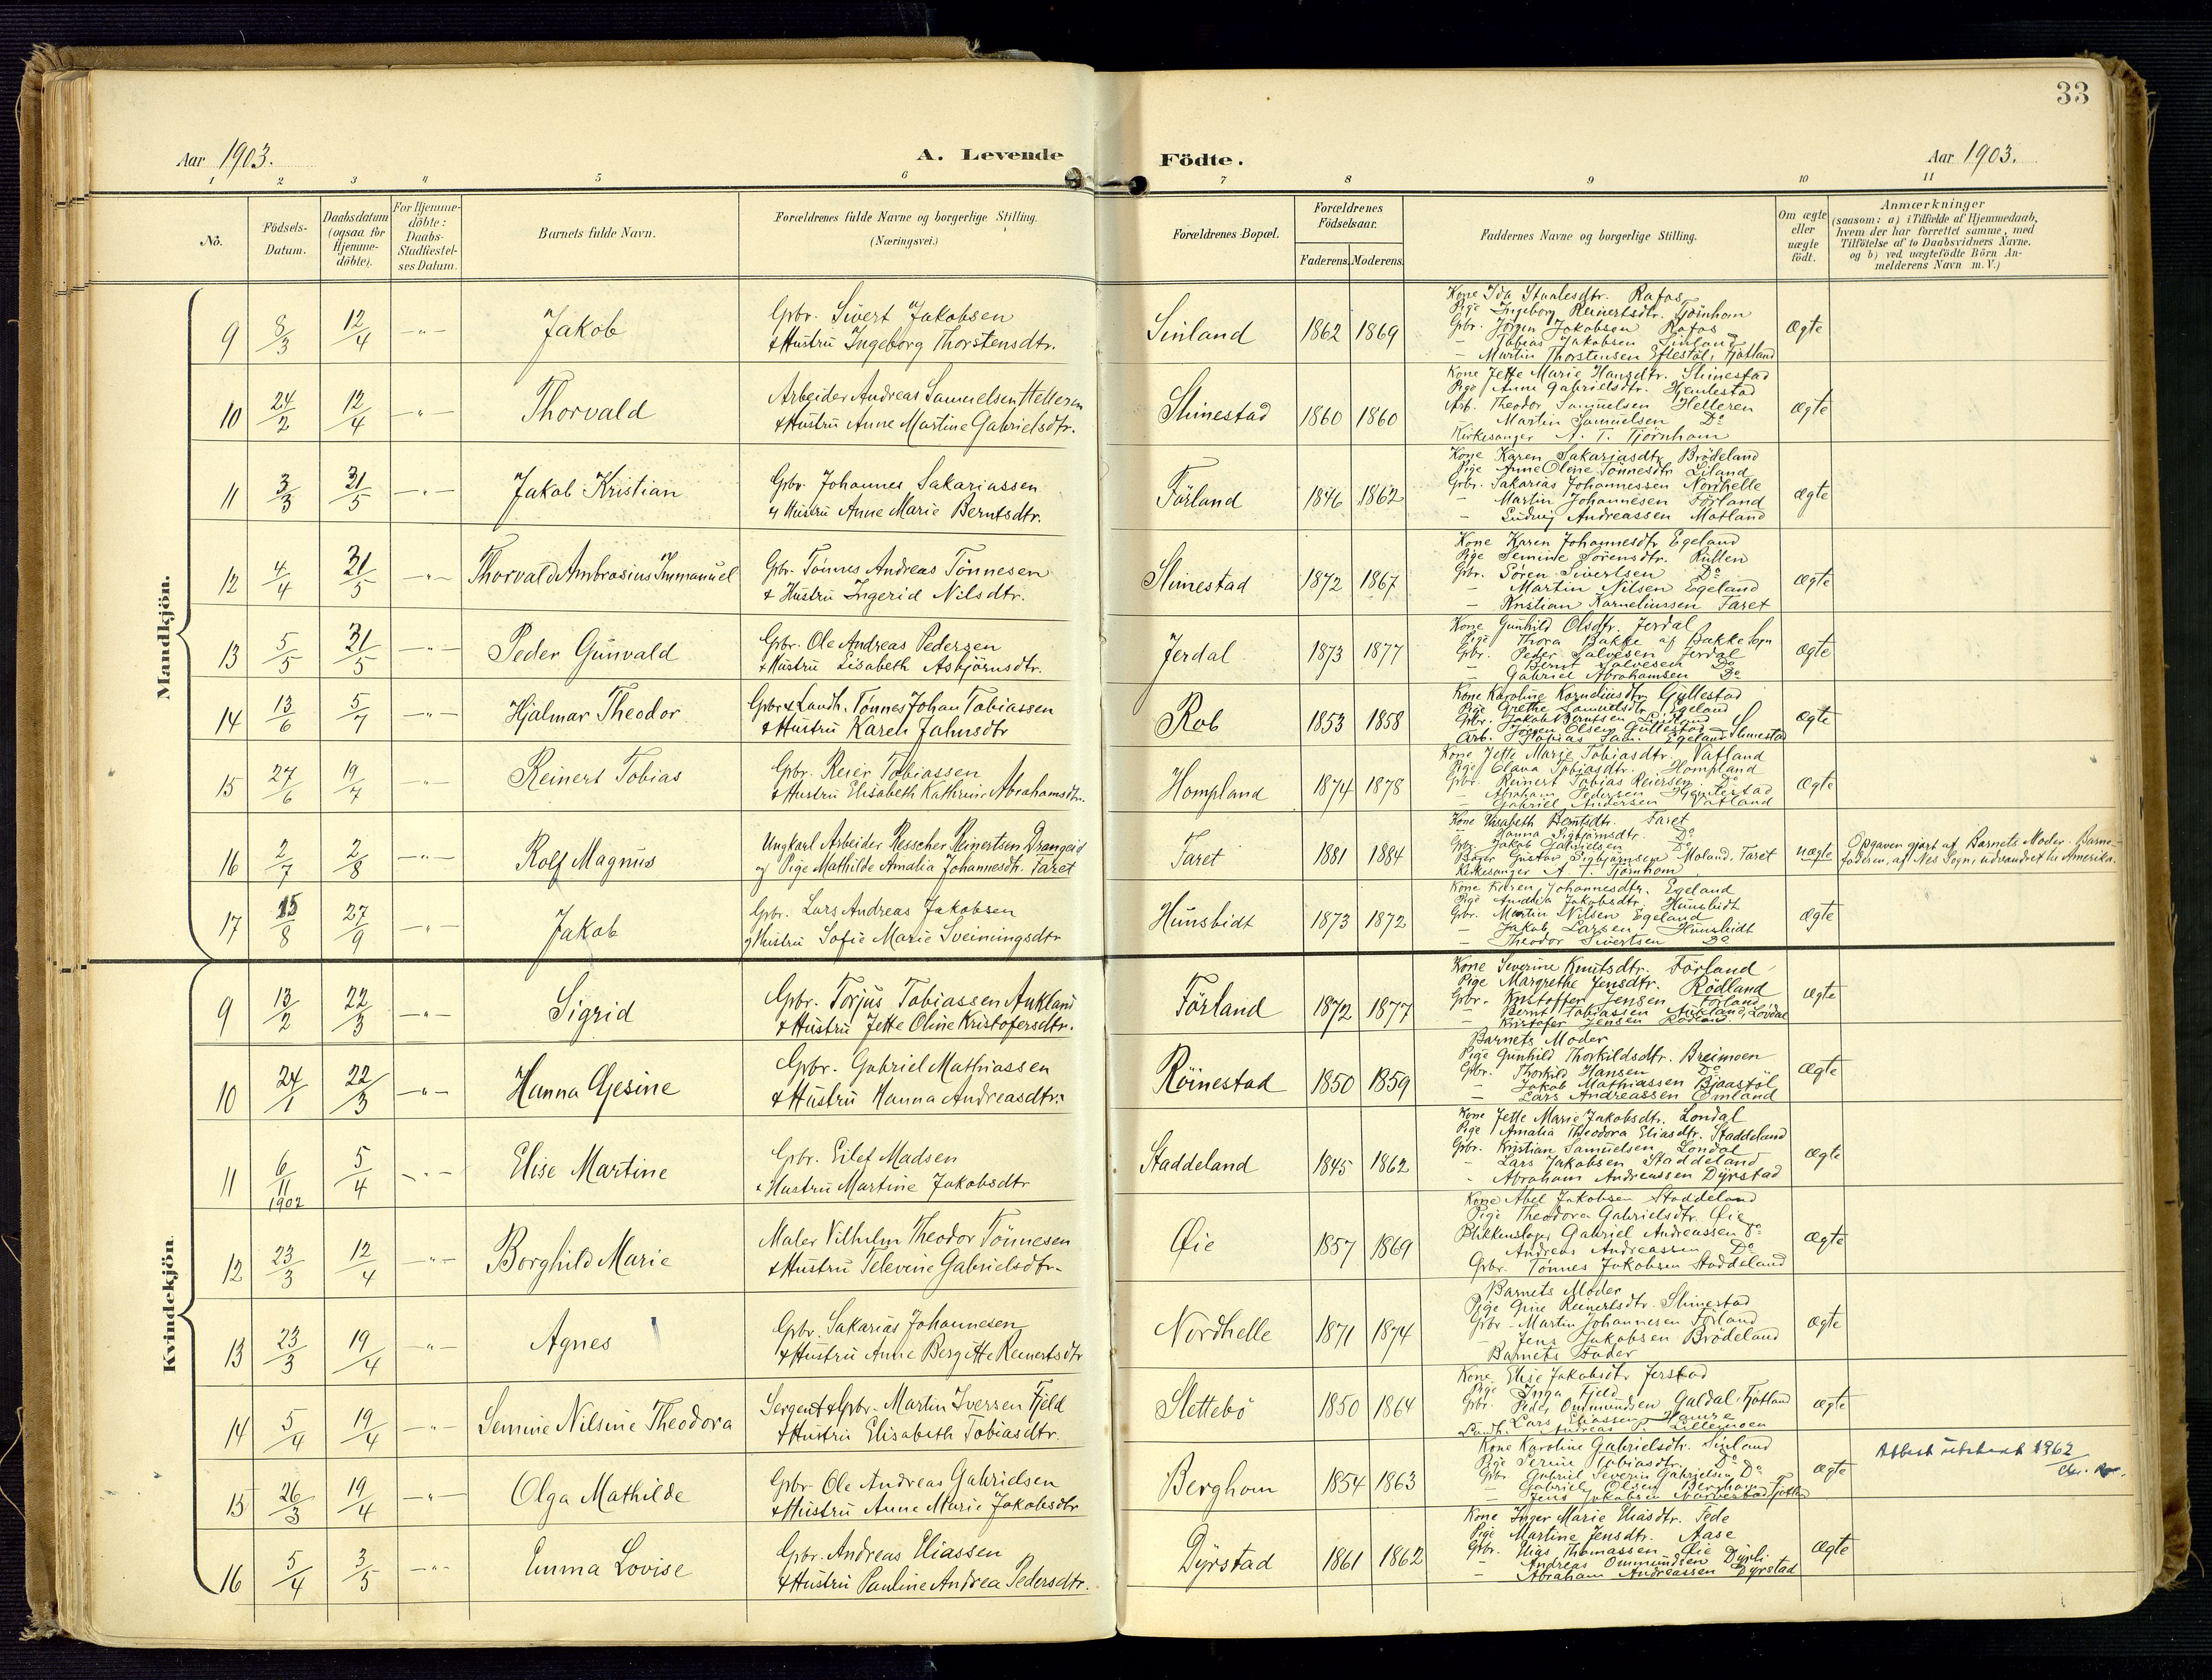 33
Aar 1903.
A. Levende Födte.
Aar 1903.
1 2 3 4 5 6 7 8 9 10 11
No.
Födsels-Datum.
Daabsdatum (ogsaa for Hjemme-döbte).
For Hjemme-döbte: Daabs-Stadfæstel-ses Datum.
Barnets fulde Navn.
Forældrenes fulde Navne og borgerlige Stilling.
(Næringsvei.)
Forældrenes Bopæl.
Forældrenes Födselsaar.
Faderens. Moderens.
Faddernes Navne og borgerlige Stilling.
Om ægte eller uægte födt.
Anmærkninger
(saasom: a) i Tilfælde af Hjemmedaab,
hvem der har forrettet samme, med
Tilföielse af to Daabsvidners Navne.
og b) ved uægtefödte Börn An-
melderens Navn m. V.)
Mandkjön.
9 8/3 12/4 —"— Jakob
Gbr. Sivert Jakobsen
& Hustru Ingeborg Thorstensdtr.
Sinland 1862 1869
Kone Ida Staalesdtr. Rafos
Pige Ingeborg Reinertsdtr. Tjörnhom
Gbr. Jörgen Jakobsen Rafos
— Tobias Jakobsen Sinland
— Martin Thorstensen Eftestöl, Fjotland
Ægte
10 24/2 12/4 —"— Thorvald
Arbeider Andreas Samuelsen Helleren
& Hustru Anne Martine Gabrielsdtr.
Slimestad 1860 1860
Kone Jette Marie Hansdtr. Slimestad
Pige Anne Gabrielsdtr. Hamlestad
Arb. Theodor Samuelsen Helleren
Martin Samuelsen Do
Kirkesanger A. T. Tjörnhom
Ægte
11 3/3 31/5 —"— Jakob Kristian
Gbr. Johannes Sakariassen
& Hustru Anne Marie Berntsdtr.
Förland 1846 1862
Kone Karen Sakariasdtr. Brödeland
Pige Anne Oline Tönnesdtr. Liland
Gbr. Sakarias Johannessen Nordhelle
— Martin Johannesen Förland
— Ludvig Andreassen Motland
Ægte
12 4/4 31/5 —"— Thorvald Ambrosius Immanuel
Gbr. Tönnes Andreas Tönnesen
& Hustru Ingerid Nilsdtr.
Slimestad 1872 1867
Kone Karen Johannesdtr. Egeland
Pige Semine Sörensdtr. Rullen
Gbr. Sören Sivertsen Do
— Martin Nilsen Egeland
— Kristian Korneliussen Taret
Ægte
13 5/5 31/5 —"— Peder Gunvald
Gbr. Ole Andreas Pedersen
& Hustru Lisabeth Asbjörnsdtr.
Jerdal 1873 1877
Kone Gunhild Olsdtr. Jerdal
Pige Thora Bakke af Bakke Sogn
Gbr. Peder Salvesen Jerdal
— Bernt Salvesen Do
— Gabriel Abrahamsen Do
Ægte
14 13/6 5/7 —"— Hjalmar Theodor
Gbr. & Landh. Tönnes Johan Tobiassen
& Hustru Karen Jahnsdtr
Rob 1853 1858
Kone Karoline Korneliusdtr. Gyllestad
Pige Grethe Samuelsdtr. Egeland
Gbr. Jakob Berntsen
— Jörgen Olsen Gyllestad
Arb. Tobias Sam. Egeland, Slimestad
Ægte
15 27/6 19/7 —"— Reinert Tobias
Gbr. Reier Tobiassen
& Hustru Elisabeth Kathrine Abrahamsdtr.
Hompland 1874 1878
Kone Jette Marie Tobiasdtr. Vatland
Pige Olava Tobiasdtr. Hompland
Gbr. Reinert Tobias Reiersen Do
— Abraham Pedersen
— Gabriel Andersen Vatland
Ægte
16 2/7 2/8 —"— Rolf Magnus
Ungkarl Arbeider Resscher Reinertsen Drangeid
og Pige Mathilde Amalia Johannesdtr. Taret
Taret 1881 1884
Kone Elisabeth Berntsdtr. Taret
— Hanna Sigbjörnsdtr. Do
Gbr. Jakob Gabrielsen Do
Bager Gustav Sigbjörnsen Moland, Taret
Kirkesanger A. T. Tjörnhom
uægte
Opgaven gjort af Barnets Moder. Barne-
faderen, af Nes Sogn, udvandret til Amerika.
17 15/8 27/9 —"— Jakob
Gbr. Lars Andreas Jakobsen
& Hustru Sofie Marie Sveinungsdtr
Hunsbidt 1873 1872
Kone Karen Johannesdtr. Egeland
Pige Amalia Jakobsdtr. Hunsbidt
Gbr. Martin Nilsen Egeland
— Jakob Larsen Hunsbidt
— Theodor Sivertsen Do
Ægte
Kvindekjön.
9 13/2 22/3 —"— Sigrid
Gbr. Torjus Tobiassen Aukland
& Hustru Jette Oline Kristofersdtr.
Förland 1872 1877
Kone Severine Knutsdtr. Förland
Pige Margrethe Jensdtr. Rödland
Gbr. Kristoffer Jensen Förland
— Bernt Tobiassen Aukland, Lövdal
— Kristofer Jensen Rödland
Ægte
10 24/1 22/3 —"— Hanna Gesine
Gbr. Gabriel Mathiassen
& Hustru Hanna Andreasdtr.
Röinestad 1850 1859
Barnets Moder
Pige Gunhild Thorkildsdtr. Breimoen
Gbr. Thorkild Hansen Do
— Jakob Mathiassen Bjaastöl
— Lars Andreassen Omland
Ægte
11 6/11 1902 5/4 —"— Elise Martine
Gbr. Eilef Madsen
& Hustru Martine Jakobsdtr
Staddeland 1845 1862
Kone Jette Marie Jakobsdtr. Londal
Pige Amalia Theodora Eliasdtr. Staddeland
Gbr. Kristian Samuelsen Londal
— Lars Jakobsen Staddeland
— Abraham Andreassen Dyrstad
Ægte
12 23/3 12/4 —"— Borghild Marie
Maler Vilhelm Theodor Tönnesen
& Hustru Televine Gabrielsdtr.
Øie 1857 1869
Kone Abel Jakobsen Staddeland
Pige Theodora Gabrielsdtr. Øie
Blikkenslager Gabriel Andreassen Do
Andreas Andreassen Do
Gbr. Tönnes Jakobsen Staddeland
Ægte
13 23/3 19/4 —"— Agnes
Gbr. Sakarias Johannesen
& Hustru Anne Bergitte Reinertsdtr
Nordhelle 1871 1874
Barnets Moder
Pige Gine Reinertsdtr. Slimestad
Gbr. Martin Johannesen Förland
— Jens Jakobsen Brödeland
Barnets Fader
Ægte
14 5/4 19/4 —"— Semine Nilsine Theodora
Sergent & Gbr. Martin Iversen Fjeld
& Hustru Elisabeth Tobiasdtr.
Slettebö 1850 1864
Kone Elise Jakobsdtr Jerstad
Pige Inga Fjeld
Gbr. Peder Ommundsen Galdal, Fjotland
— Lars Eliassen Hamre
Landh. Andreas P. Lillemoen
Ægte
15 26/3 19/4 —"— Olga Mathilde
Gbr. Ole Andreas Gabrielsen
& Hustru Anne Marie Jakobsdtr
Berghom 1854 1863
Kone Karoline Gabrielsdtr. Sinland
Pige Serine Tobiasdtr. Do
Gbr. Gabriel Severin Gabrielsen Do
— Gabriel Olsen Berghom
— Jens Jakobsen Narvestad, Fjotland
Ægte
Attest utskrevet 1962
16 5/4 3/5 —"— Emma Lovise
Gbr. Andreas Eliassen
& Hustru Pauline Andrea Pedersdtr.
Dyrstad 1861 1862
Kone Inger Marie Eliasdtr. Fede
Pige Martine Jensdtr. Aase
Gbr. Elias Thomassen Øie
— Andreas Ommundsen Dyrli
— Abraham Andreassen Dyrstad
Ægte